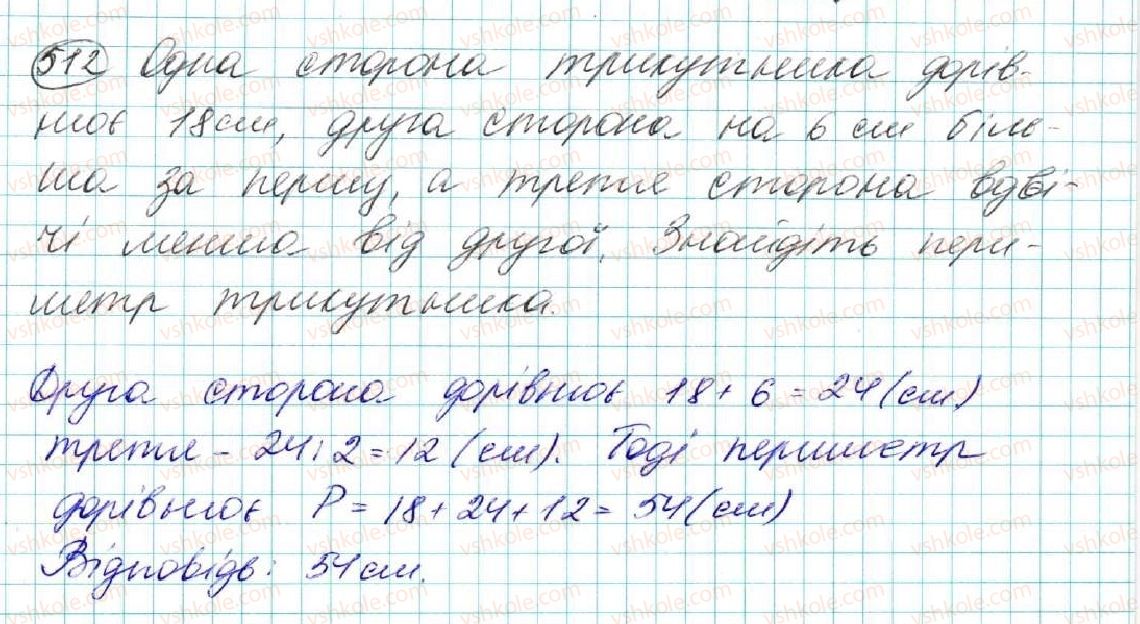 512 Одна сторона трикутника дорів-
нює 18 см, друга сторона на 6 см біль-
ша за першу, а третя сторона вдві-
чі менша від другої. Знайдіть пери-
метр трикутника.
Друга сторона дорівнює 18 + 6 = 24 (см)
третя - 24 : 2 = 12 (см). Тоді периметр
дорівнює P = 18 + 24 + 12 = 54 (см)
Відповідь: 54 см.